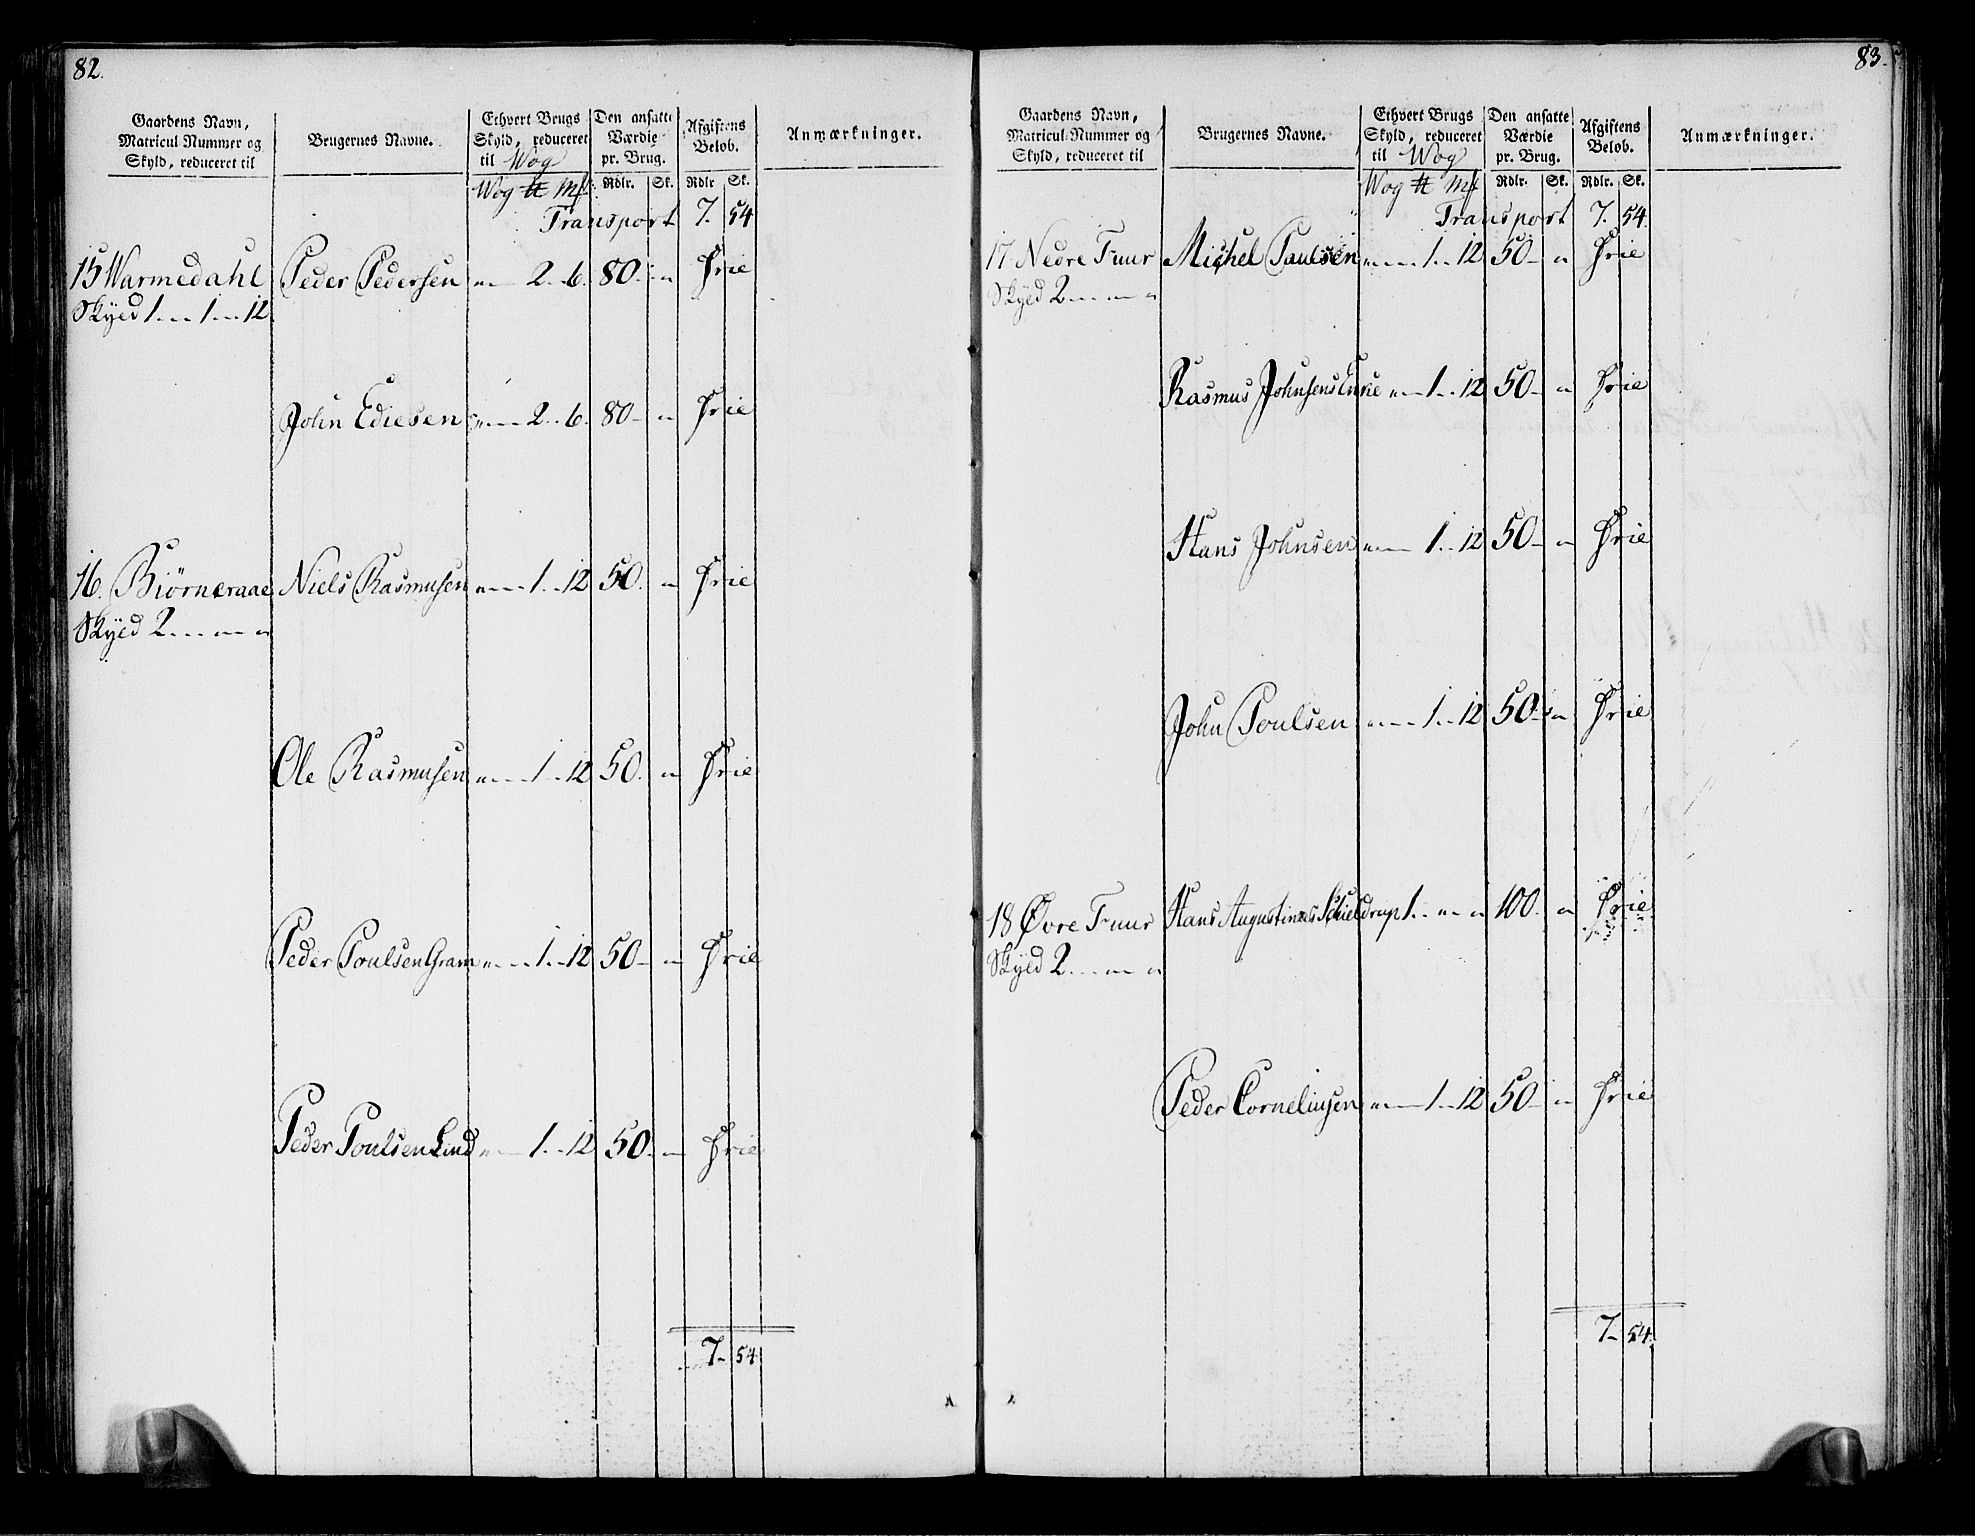 82.
Gaardens Navn, Matricul Nummer og Skyld, reduceret til
Brugernes Navne.
Ethvert Brugs Skyld, reduceret til Wog
Den ansatte Værdie pr. Brug.
Afgiftens Beløb.
Anmærkninger.
Wog ℔ Mk Rdlr. Sk. Rdlr Sk.
Transport 7. 54
15 Warmedahl Peder Pedersen " — 2. 6. 80. " Frie
Skyld 1 . . . 1 . . . 12.
John Ediesen " — 2. 6. 80 — " Frie
16. Biørneraae Niels Rasmusen " — 1. 12 50. " Frie
Skyld 2 . . . " — "
Ole Rasmusen " — 1. 12 50. " Frie
Peder Poulsen Gram " — 1. 12 50 — " Frie
Peder Poulsen Lind " — 1. 12 50. " Frie
7 — 54
83.
Gaardens Navn, Matricul Nummer og Skyld, reduceret til
Brugernes Navne.
Ethvert Brugs Skyld, reduceret til Wog
Den ansatte Værdie pr. Brug.
Afgiftens Beløb.
Anmærkninger.
Wog ℔ Mk Rdlr. Sk. Rdlr. Sk.
Transport 7. 54.
17 Nedre Fuur Michel Paulsen " — 1. 12 50 — " Frie
Skyld 2 . . . " — "
Rasmus Johnsens Enke " — 1. 12 50 — " Frie
Hans Johnsen " — 1. 12 50 — " Frie
John Poulsen " — 1. 12 50 — " Frie
18 Øvre Fuur Hans Augustinus Schieldrup 1. " — " 100. " Frie
Skyld 2 . . . " — "
Peder Corneliusen " — 1. 12 50 — " Frie
7 — 54.